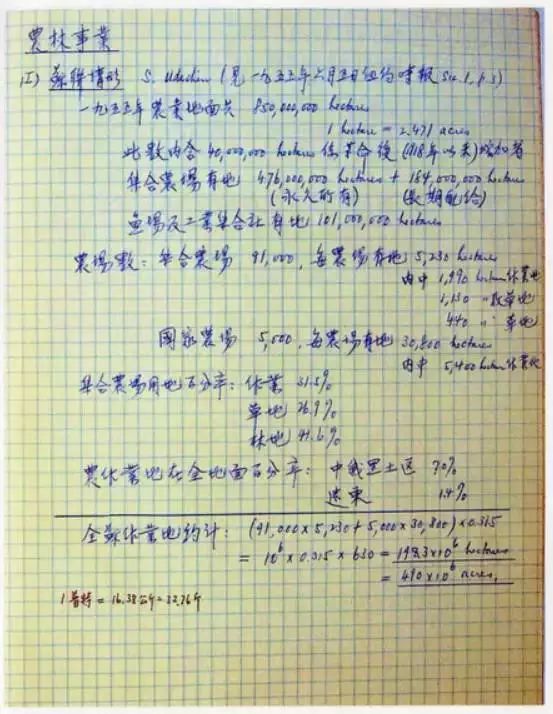 農林事業
(I) 蘇聯情形 S. Udachin (見一九五五年六月五日紐約時報 Sec. 1, p. 3)
一九五五年農業地面共 850,000,000 hectares
1 hectare = 2.471 acres
此數內含 40,000,000 hectares 係革命後 (1918年以來) 增加者
集合農場有地 476,000,000 hectares + 184,000,000 hectares
(永久所有) (長期配給)
及工業集合社有地 101,000,000 hectares
農場數: 集合農場 91,000, 每農場有地 5,230 hectares
內中 1,990 hectares 作業地
1,130 " 草地
440 " 草地
国家農場 5,000, 每農場有地 30,800 hectares
內中 5,400 hectares 作業地
集合農場用地百分率: 作業 31.5%
草地 26.9%
林地 41.6%
農作業地在全地面百分率: 中俄黑土区 70%
遠東 1.4%
全蘇作業地約計: (91,000 x 5,230 + 5,000 x 30,800) x 0.315
= 10⁶ x 0.315 x 630 = 198.3 x 10⁶ hectares
= 490 x 10⁶ acres.
1 普特 = 16.38 公斤 = 32.76 斤